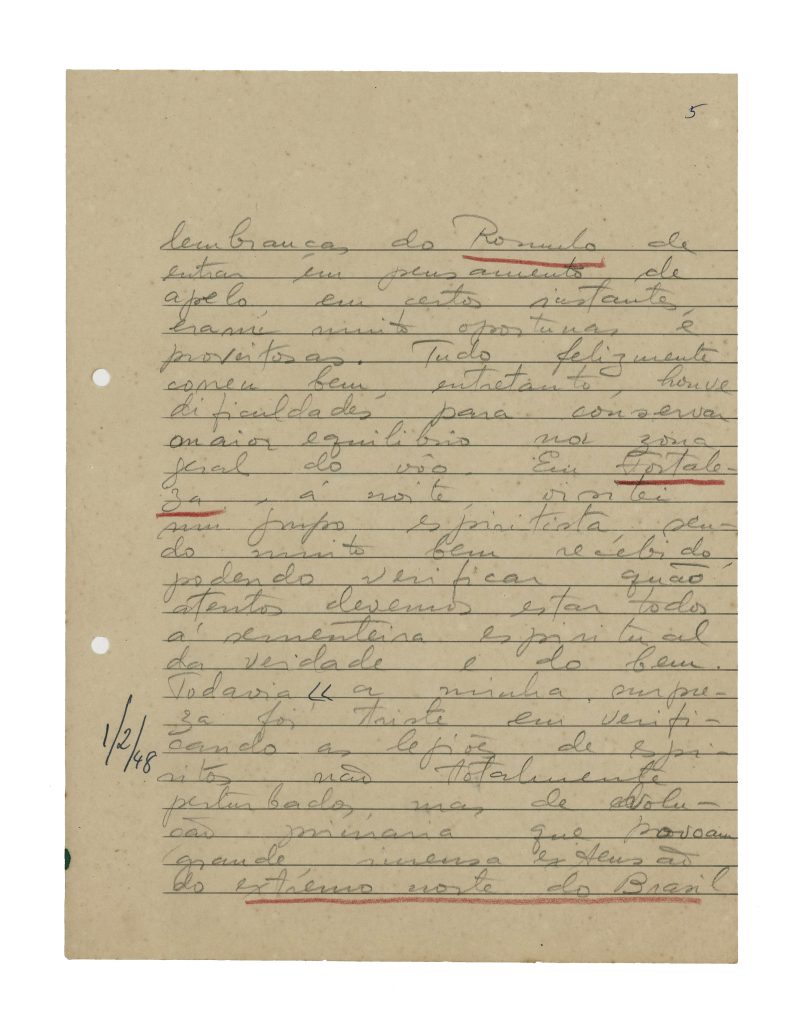 5
lembranças do Romulo de
entrar em pensamento de
apelo, em certos instantes,
eram muito oportunas e
proveitosas. Tudo felizmente
correu bem, entretanto, houve
dificuldades para conservar
maior equilibrio na zona
geral do vôo. Em Fortale-
za, á noite, visitei
um grupo espiritista, sen-
do muito bem recebido,
podendo verificar quão
atentos devemos estar todos
á sementeira espiritual
da verdade e do bem.
Todavia, << a minha surpre-
za foi triste em verifi-
1/2/48
cando as legiões de espi-
ritos não totalmente
perturbados, mas de evolu-
ção primaria que povoam
grande imensa extensão
do extremo norte do Brasil